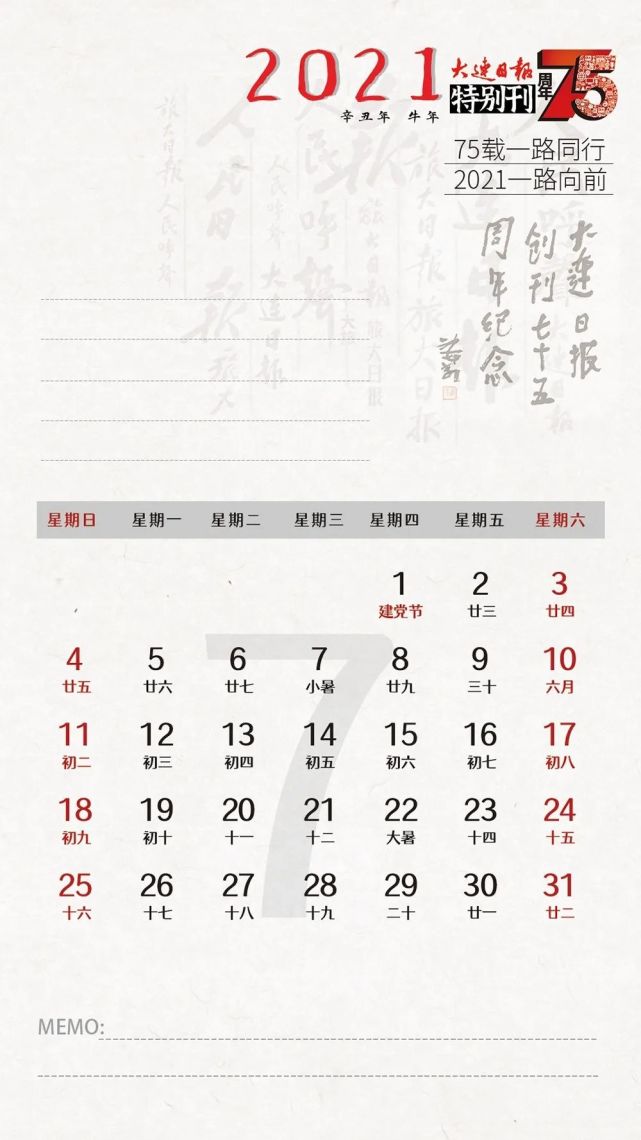 2021
辛丑年 牛年
大连日报
特别刊
周年
75
75载一路同行
2021一路向前
大连日报
创刊七十五
周年纪念
星期日 星期一 星期二 星期三 星期四 星期五 星期六
1 2 3
建党节 廿三 廿四
4 5 6 7 8 9 10
廿五 廿六 廿七 小暑 廿九 三十 六月
11 12 13 14 15 16 17
初二 初三 初四 初五 初六 初七 初八
18 19 20 21 22 23 24
初九 初十 十一 十二 大暑 十四 十五
25 26 27 28 29 30 31
十六 十七 十八 十九 二十 廿一 廿二
7
MEMO: